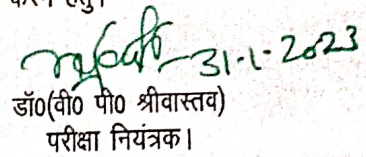 31-1-2023
डॉ0(वी0 पी0 श्रीवास्तव)
परीक्षा नियंत्रक।